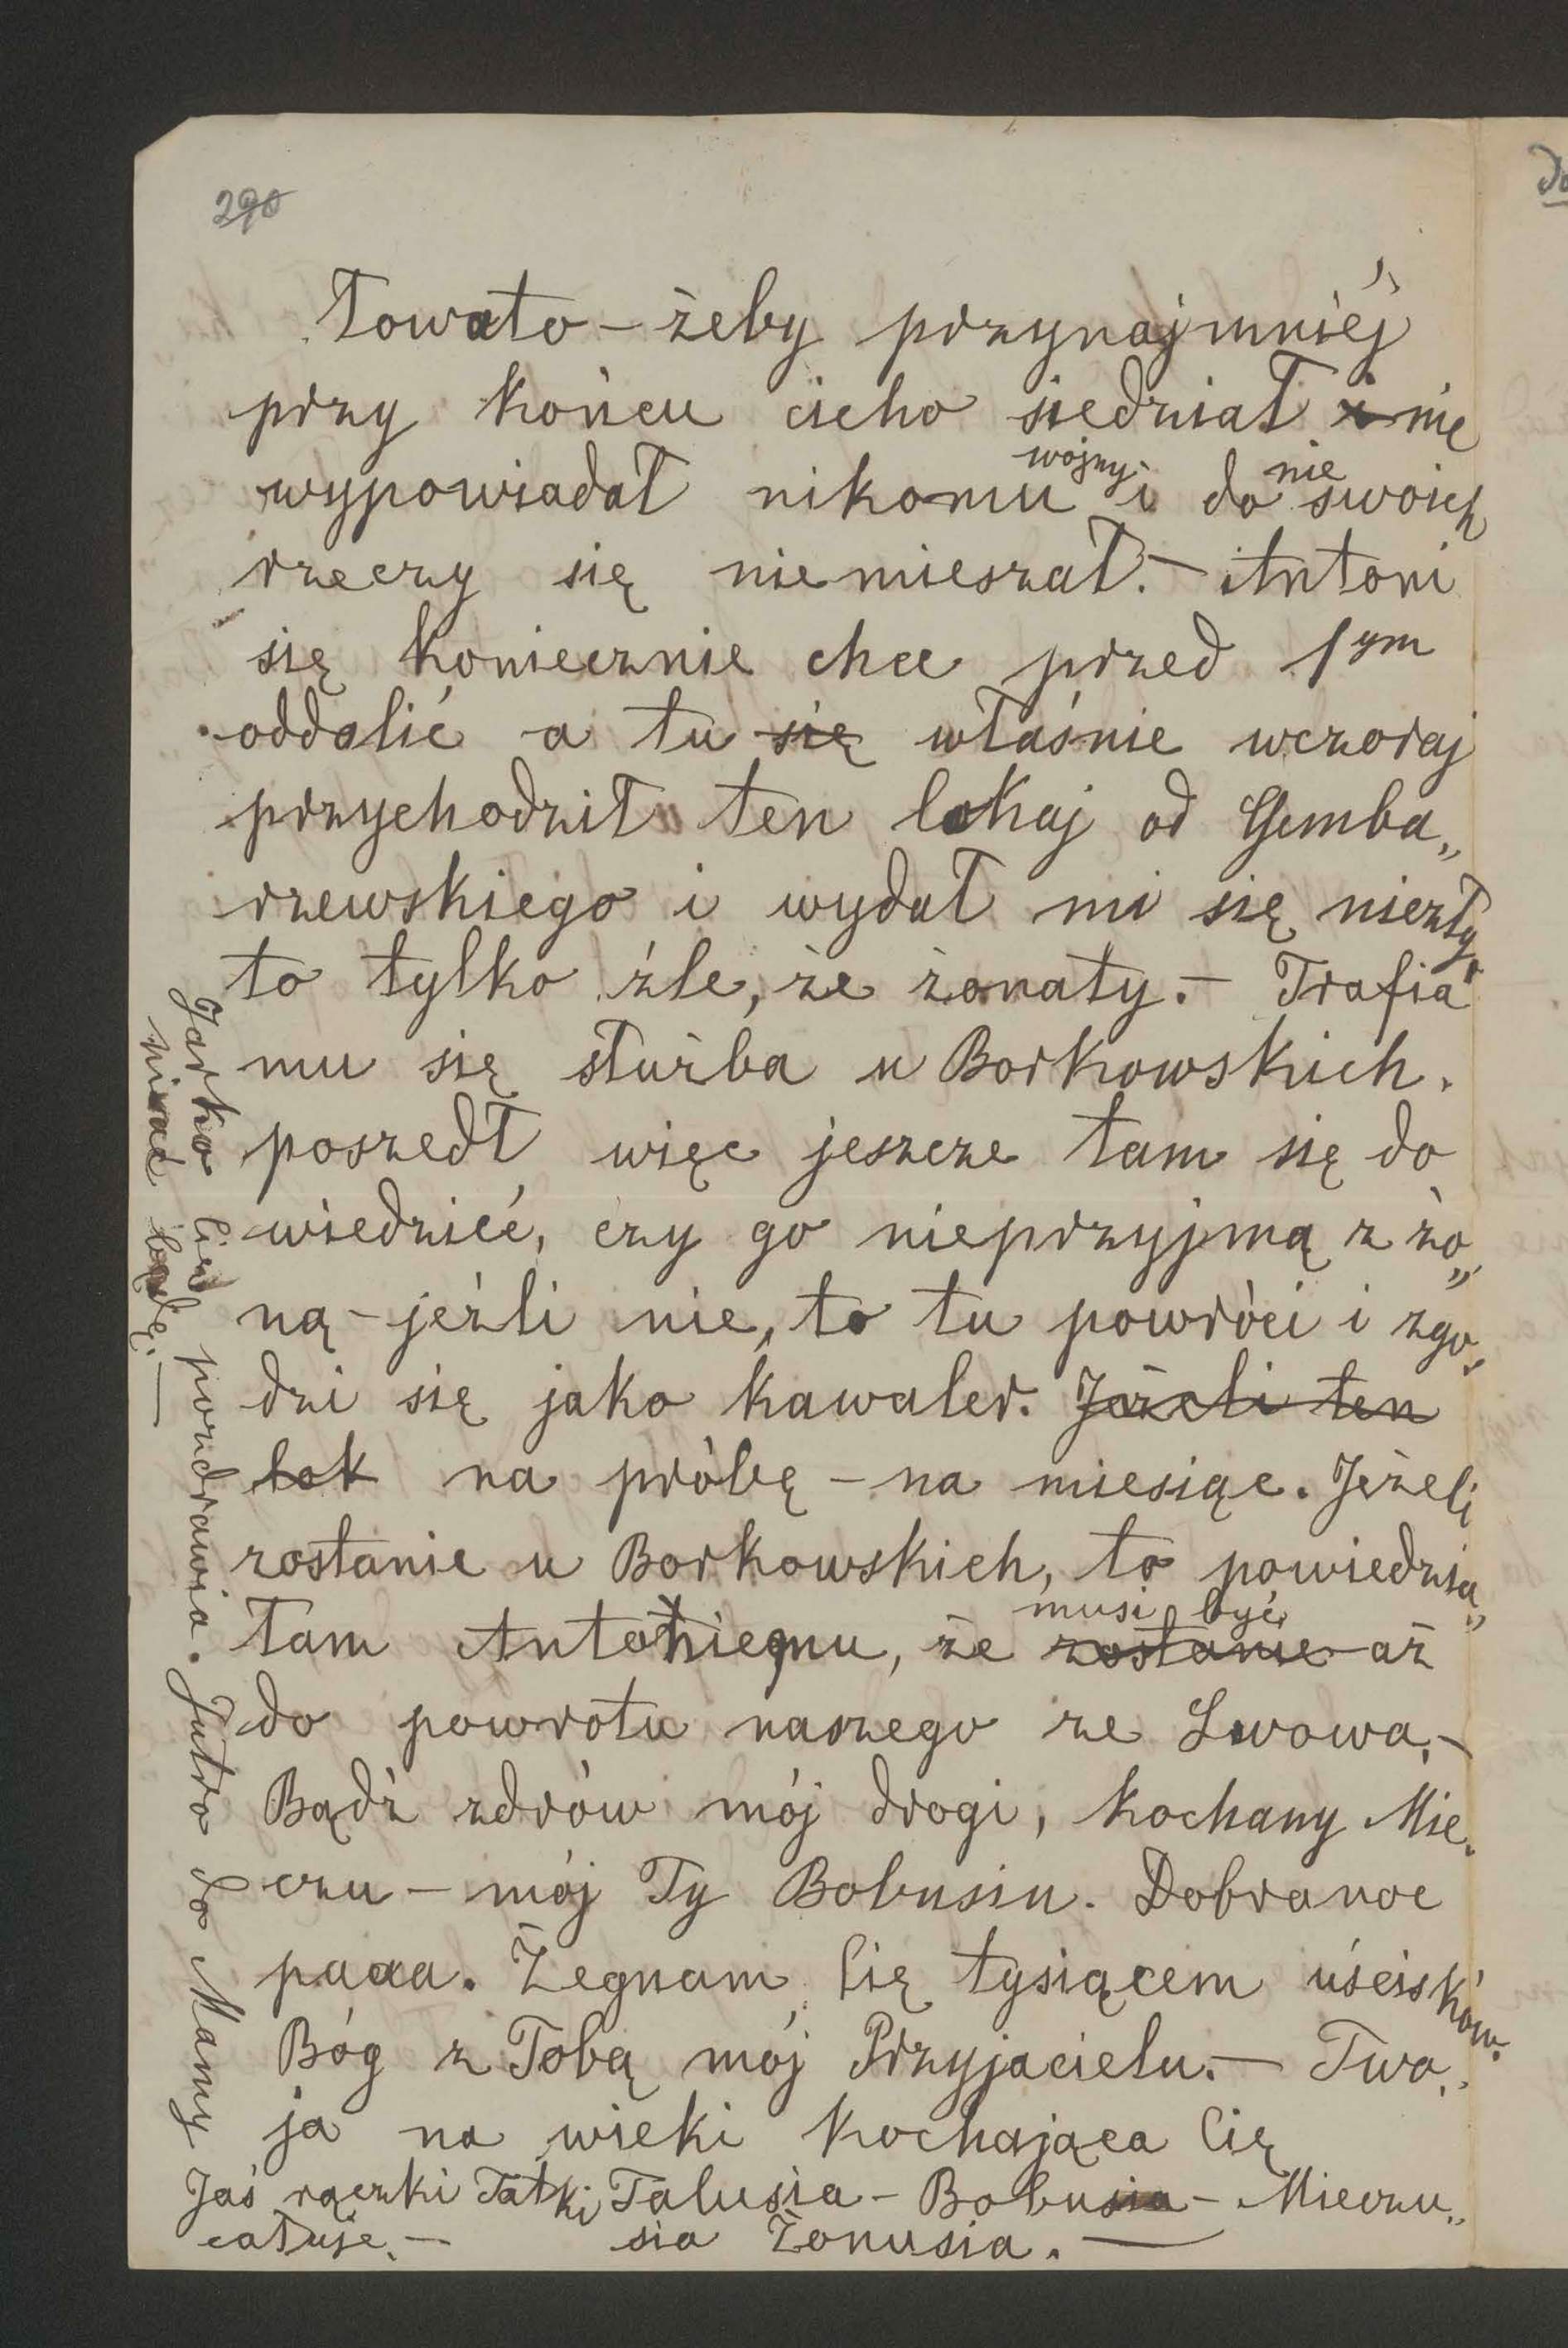 290
łowato – żeby przynajmniéj
przy końcu cicho siedział i nie
wypowiadał nikomu wojny i do nie swoich
rzeczy się niemieszał. – Antoni
się koniecznie chce przed 1ym
oddalić a tu się właśnie wczoraj
przychodził ten lokaj od Gemba„
rzewskiego i wydał mi się niezły,
to tylko źle, że żonaty. – Trafia
mu się służba u Borkowskich.
poszedł więc jeszcze tam się do
wiedzieć, czy go nieprzyjmą z żo„
ną – jeźli nie, to tu powróci i zgo„
dzi się jako kawaler. Jeżeli ten
lok na próbę – na miesiąc. Jeżeli
zostanie u Borkowskich, to powiedzia„
łam Antoniemu, że zostanie musi być aż
do powrotu naszego ze Lwowa. –
Bądź zdrów mój drogi, kochany Mie„
czu – mój Ty Bobusiu. Dobranoc
paaa. Żegnam Cię tysiącem uścisków.
Bóg z Tobą mój Przyjacielu. – Two„
ja na wieki kochająca Cię
Talusia – Bobusia – Mieczu„
sia Żonusia. –
Jaś rączki Tatki
całuje. –
Jarko Cię pozdrawia. Jutro do Mamy
pisać będę. –
Do